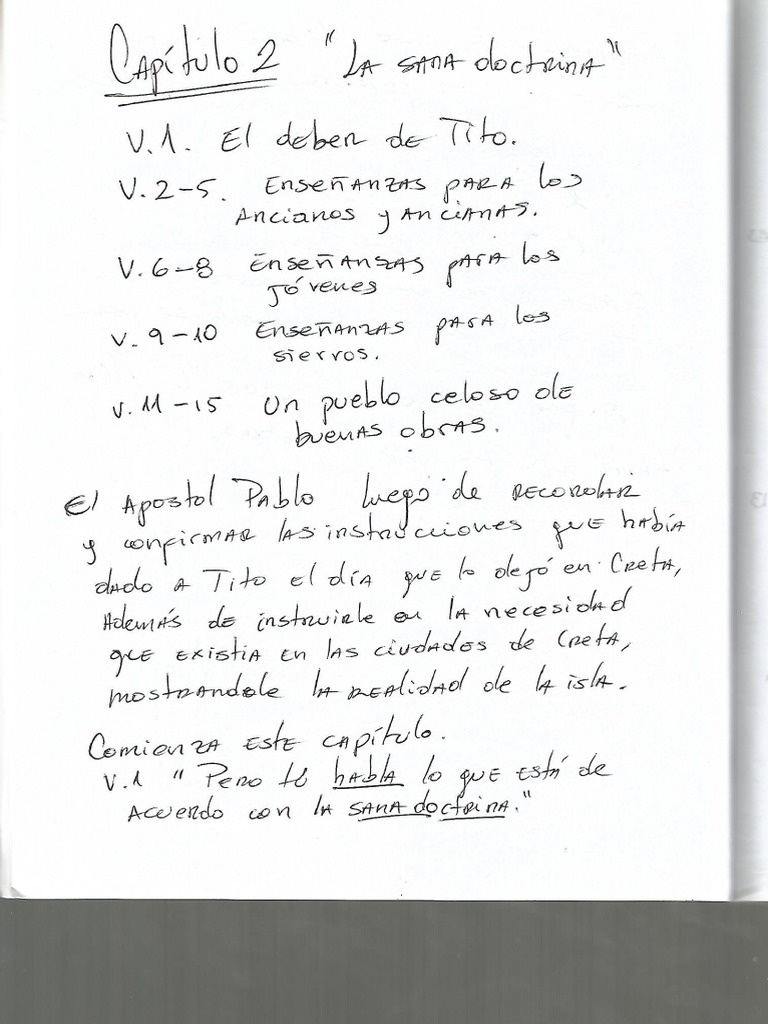 Capítulo 2 "La sana doctrina"
V.1. El deber de Tito.
V.2-5. Enseñanzas para los
Ancianos y Ancianas.
V.6-8 Enseñansas para los
jóvenes
V.9-10 Enseñanzas para los
siervos.
V.11-15 Un pueblo celoso de
buenas obras.
El Apostol Pablo luego de recordar
y confirmar las instrucciones que había
dado a Tito el día que lo dejó en Creta,
Además de instruirle en la necesidad
que existia en las ciudades de Creta,
mostrandole la realidad de la isla.
Comienza este capítulo.
V.1 "Pero tú habla lo que está de
Acuerdo con la sana doctrina."